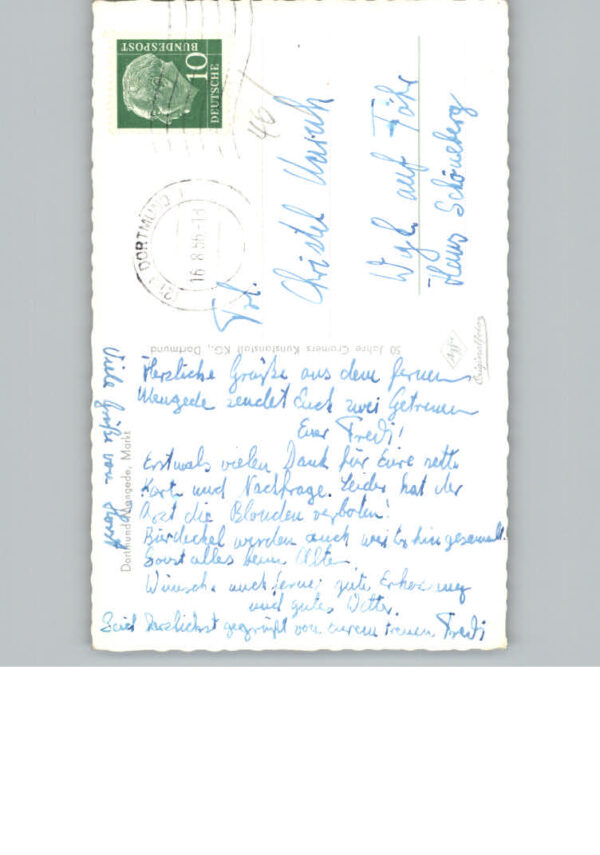 10
DEUTSCHE
BUNDESPOST
DORTMUND
16.8.56-13
46
Frl.
Christel
Wyk auf Föhr
Haus Schöneberg
Dortmund-Mengede, Markt
50 Jahre Cramers Kunstanstalt KG., Dortmund
Agfa
Originalfoto
Herzliche Grüße aus dem fernen
Mengede sendet Euch zwei Getreuen
Euer Fredi!
Erstmals vielen Dank für Eure nette
Karte und Nachfrage. Leider hat der
Arzt die Blonden verboten!
Bierdeckel werden auch weiterhin gesammelt.
Sonst alles beim Alten.
Wünsche auch ferner gute Erholung
und gutes Wetter.
Seid herzlichst gegrüßt von eurem treuen Fredi
Viele Grüße von Horst